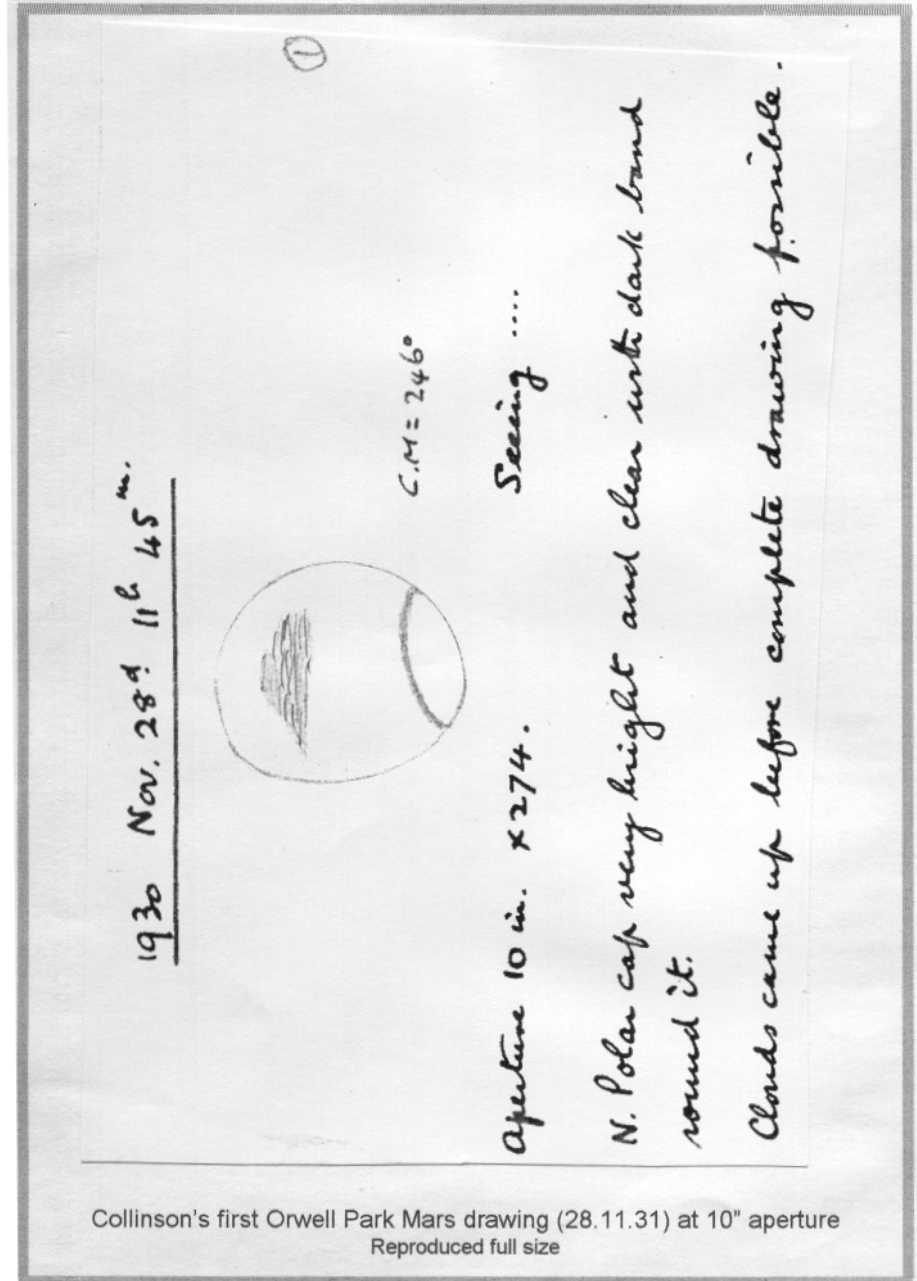 ①
1930 Nov. 28d. 11h 45m.
C.M = 246°
Aperture 10 in. ×274. Seeing ....
N. Polar cap very bright and clear with dark band
round it.
Clouds came up before complete drawing possible.
Collinson's first Orwell Park Mars drawing (28.11.31) at 10" aperture
Reproduced full size